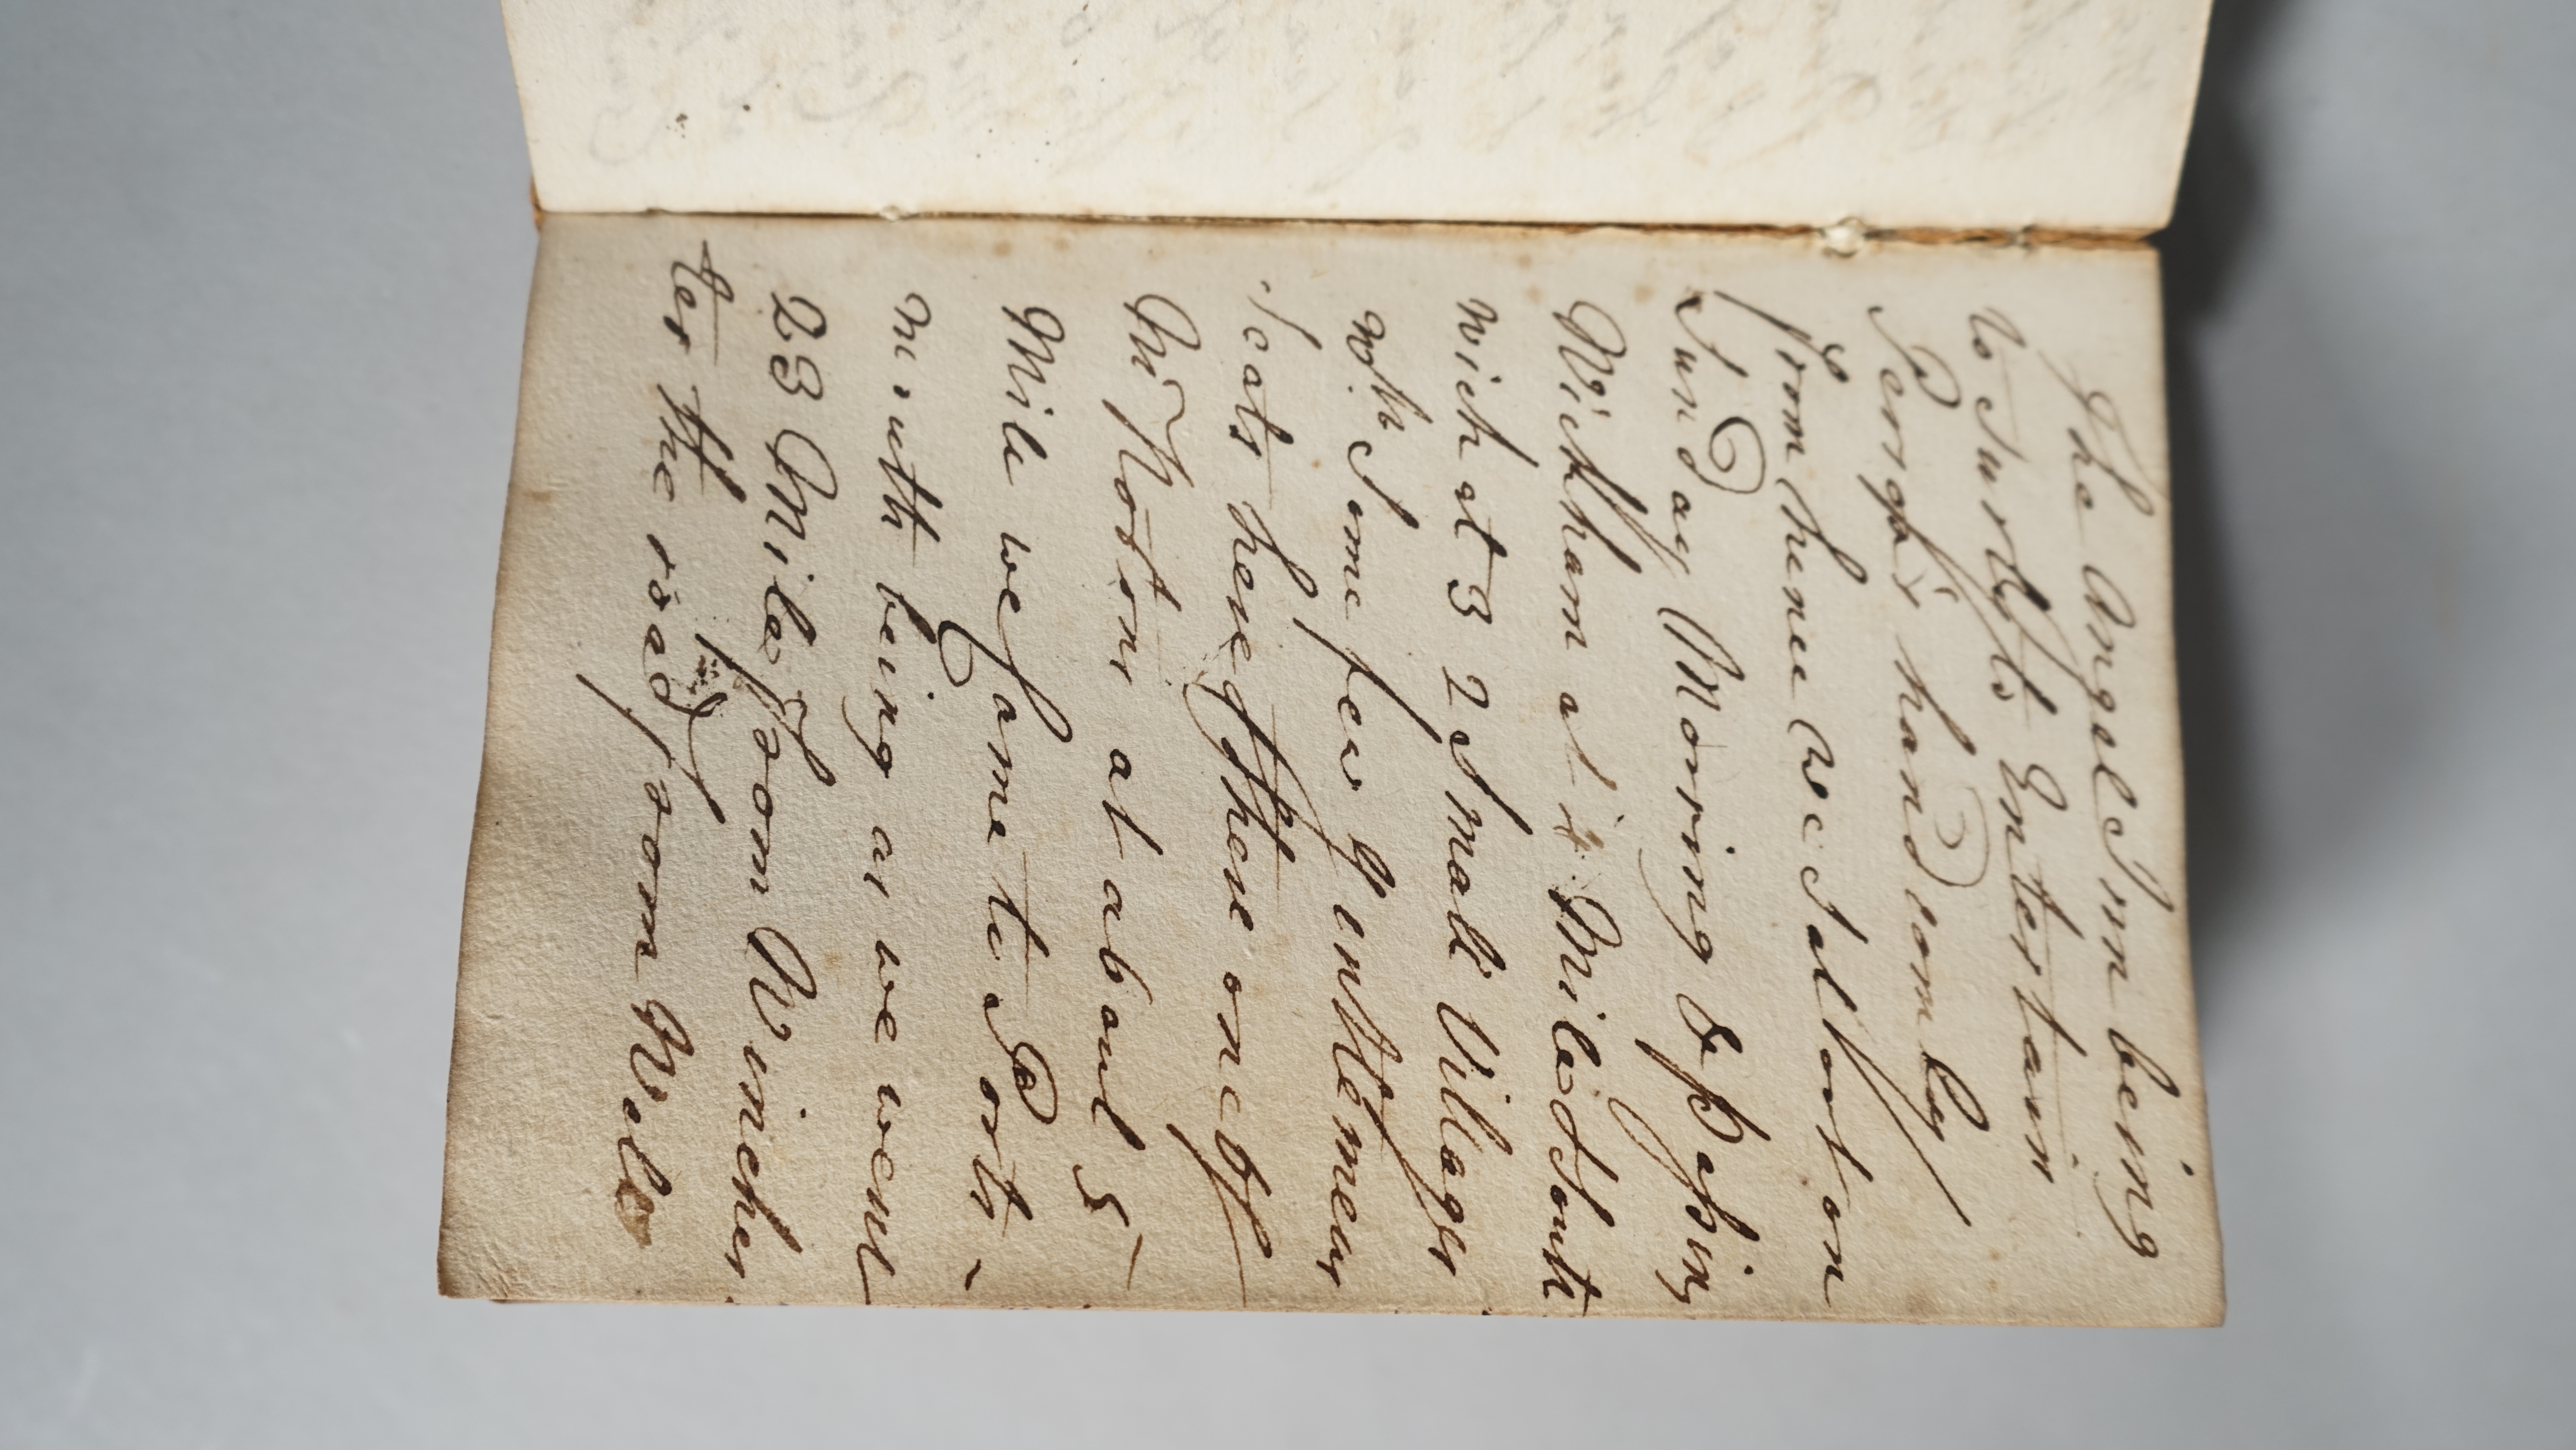 The Angel Inn being
to Surtifs Entertain
Peregb's handsomely
from hence we Sat out on
Sunday Morning & paſsing
Wickham at is Miles South
wich at 3 2 Small Villages
wth. Some few Gentlemens
Seats here & there one of
Mr Nortons at about 5
Mile we Came to Ports-
mouth being as we went
23 Miles from Winches
ter the road from Wals